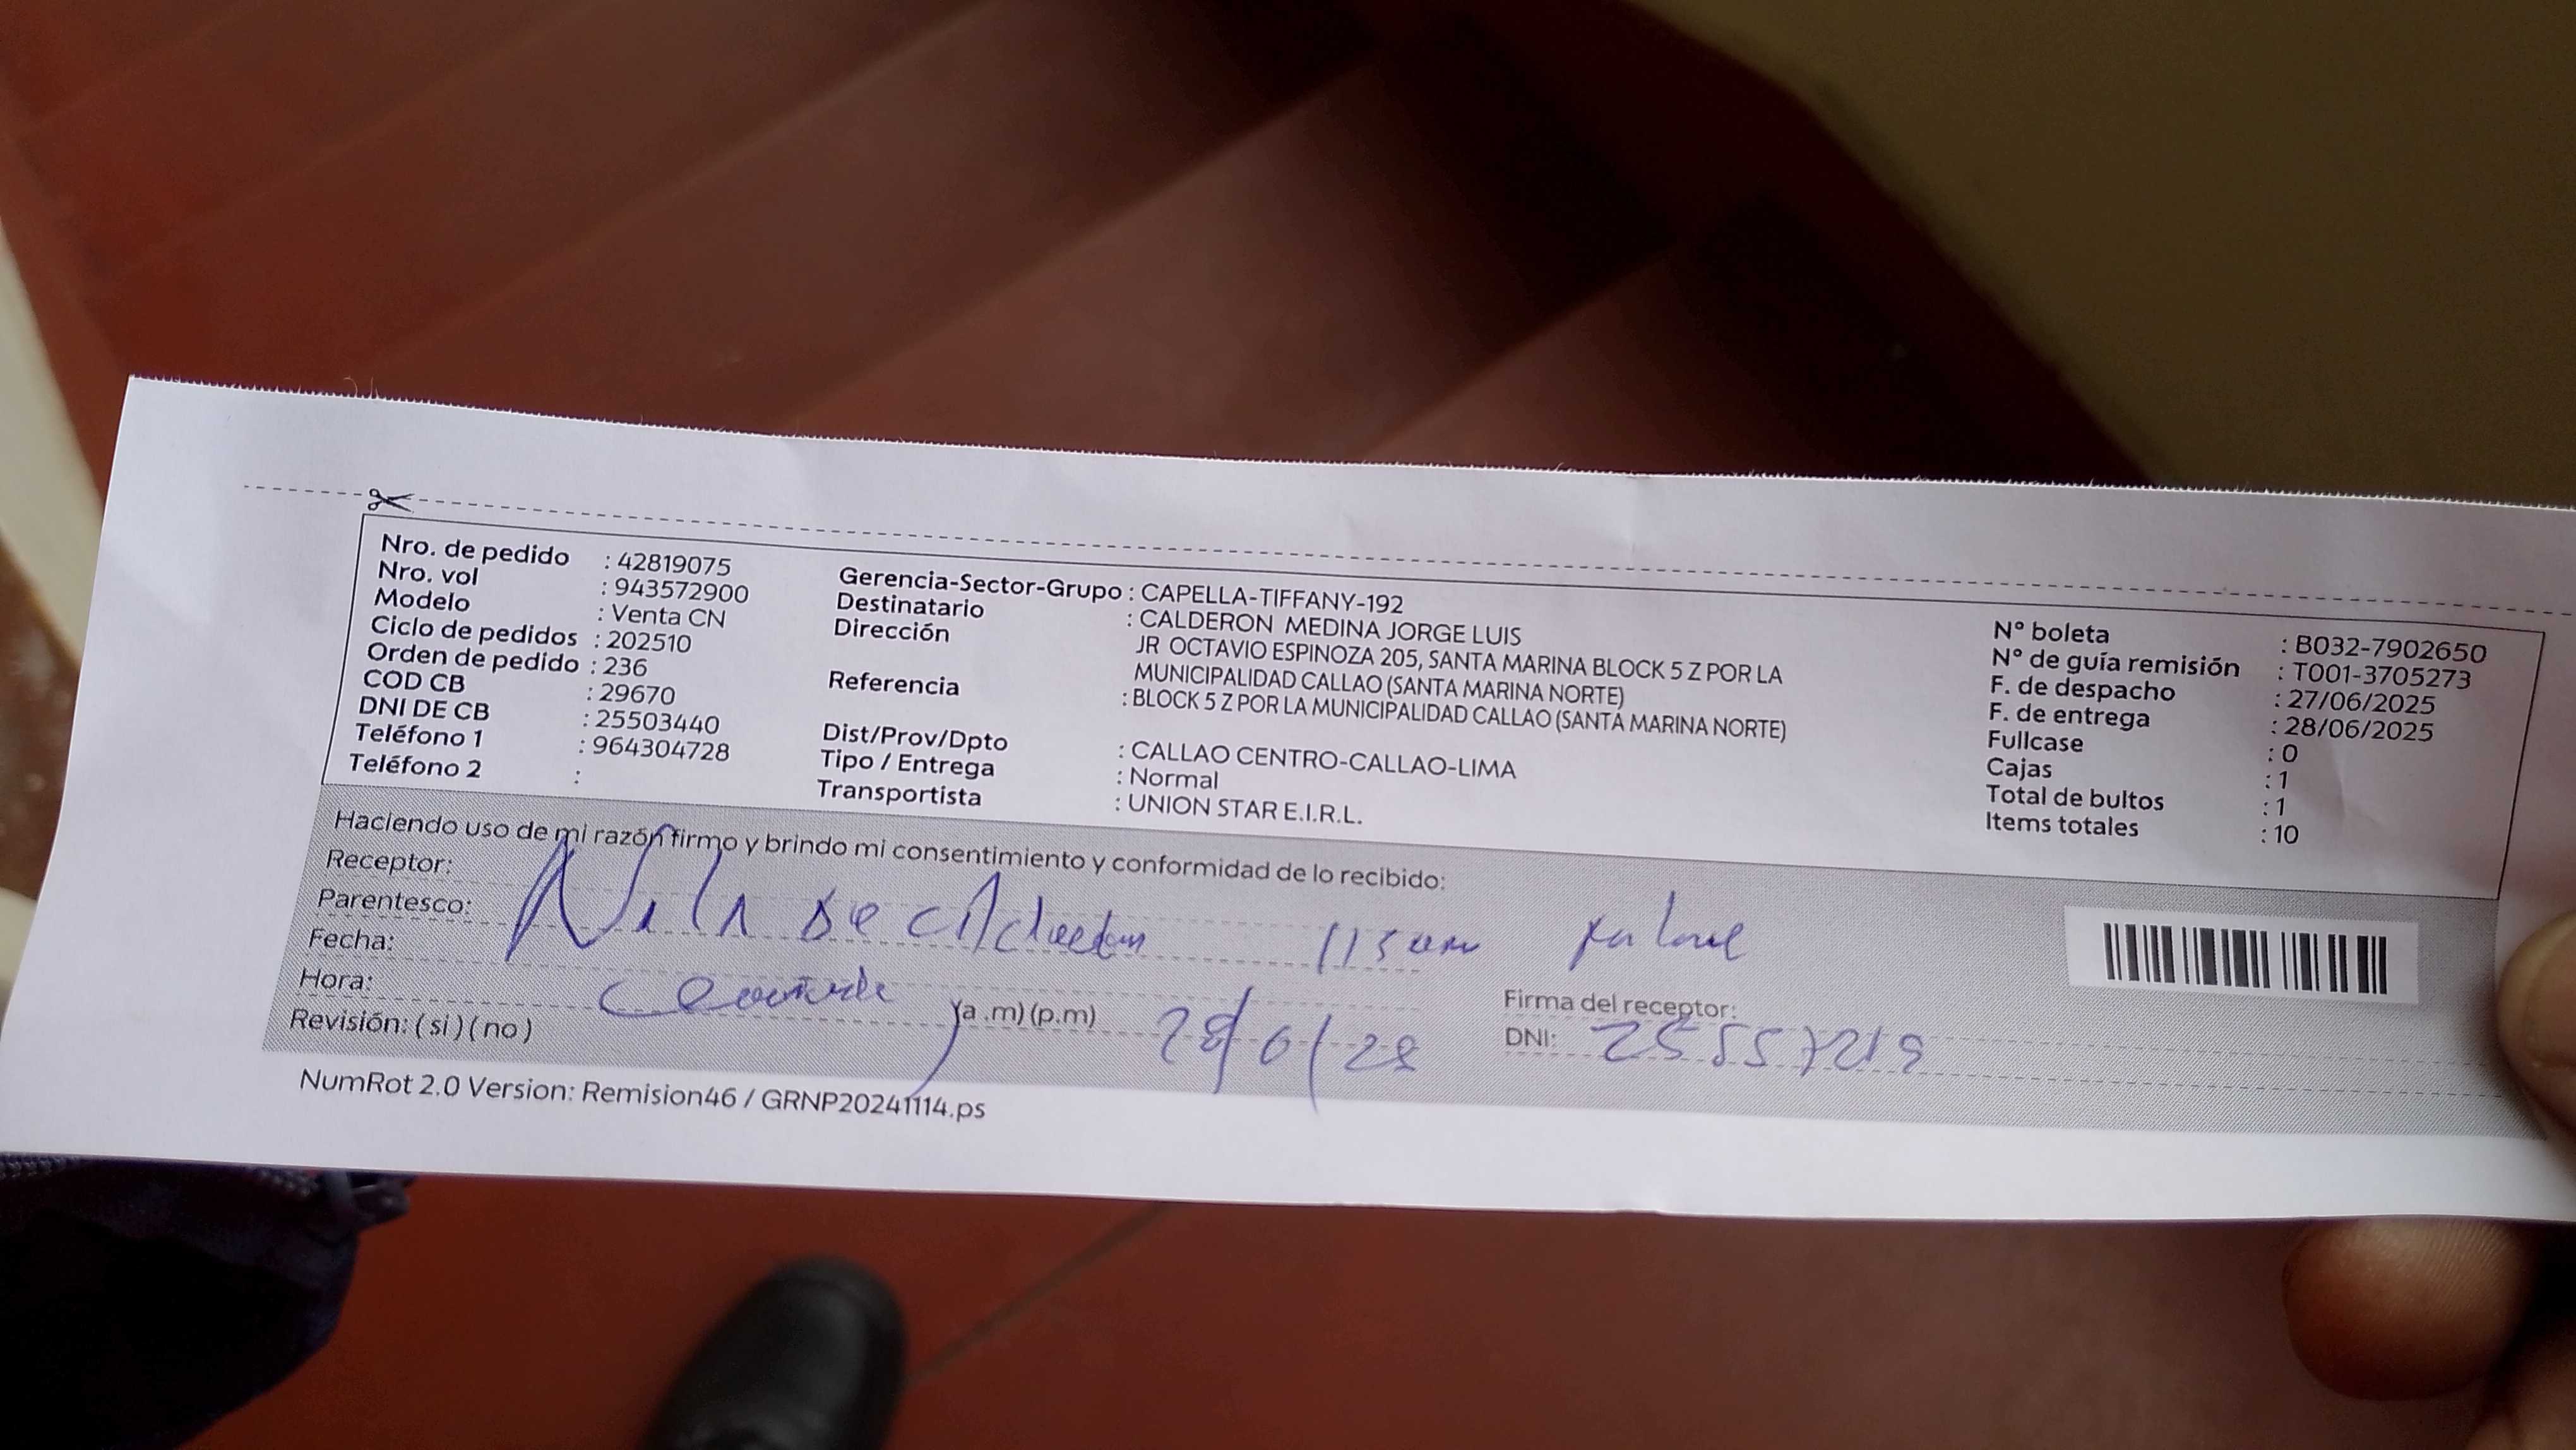 Nro. de pedido : 42819075
Nro. vol : 943572900
Modelo : Venta CN
Ciclo de pedidos : 202510
Orden de pedido : 236
COD CB : 29670
DNI DE CB : 25503440
Teléfono 1 : 964304728
Teléfono 2 :
Gerencia-Sector-Grupo : CAPELLA-TIFFANY-192
Destinatario : CALDERON MEDINA JORGE LUIS
Dirección JR OCTAVIO ESPINOZA 205, SANTA MARINA BLOCK 5 Z POR LA
MUNICIPALIDAD CALLAO (SANTA MARINA NORTE)
Referencia : BLOCK 5 Z POR LA MUNICIPALIDAD CALLAO (SANTA MARINA NORTE)
Dist/Prov/Dpto : CALLAO CENTRO-CALLAO-LIMA
Tipo / Entrega : Normal
Transportista : UNION STAR E.I.R.L.
N° boleta : B032-7902650
N° de guía remisión : T001-3705273
F. de despacho : 27/06/2025
F. de entrega : 28/06/2025
Fullcase : 0
Cajas : 1
Total de bultos : 1
Items totales : 10
Haciendo uso de mi razón firmo y brindo mi consentimiento y conformidad de lo recibido:
Receptor:
Parentesco:
Fecha:
Hora: (a .m) (p.m)
Revisión: ( si ) ( no )
Firma del receptor:
DNI: 25557219
NumRot 2.0 Version: Remision46 / GRNP20241114.ps